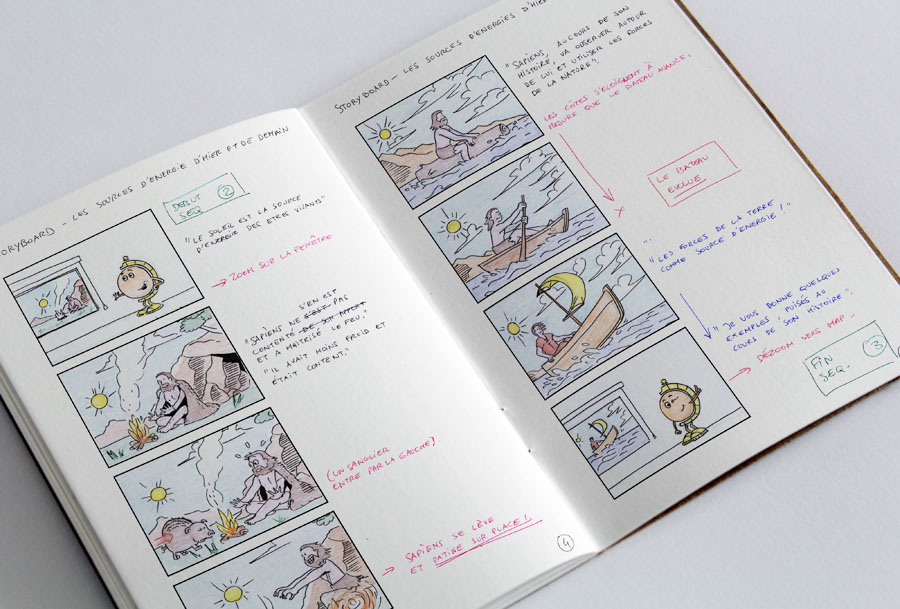 STORYBOARD - LES SOURCES D'ENERGIE D'HIER ET DE DEMAIN
DEBUT
SEQ. 2
"LE SOLEIL EST LA SOURCE
D'ENERGIE DES ETRES VIVANTS"
→ ZOOM SUR LA FENÊTRE
S'EN EST
"SAPIENS NE PAS
CONTENTÉ
ET A MAITRISÉ LE FEU."
"IL AVAIT MOINS FROID ET
ÉTAIT CONTENT."
(UN SANGLIER
ENTRE PAR LA GAUCHE)
→ SAPIENS SE LÈVE
ET PATINE SUR PLACE!
4
STORYBOARD - LES SOURCES D'ENERGIES D'HIER
"SAPIENS, AU COURS DE SON
HISTOIRE, VA OBSERVER AUTOUR
DE LUI, ET UTILISER LES FORCES
DE LA NATURE".
LES CÔTES S'ELOIGNENT À
MESURE QUE LE BATEAU AVANCE.
LE BATEAU
EVOLUE
"LES FORCES DE LA TERRE
COMME SOURCE D'ENERGIE!"
"JE VOUS DONNE QUELQUES
EXEMPLES PUISÉS AU
COURS DE SON HISTOIRE".
→ DÉZOOM VERS MAP
FIN
SEQ. 3